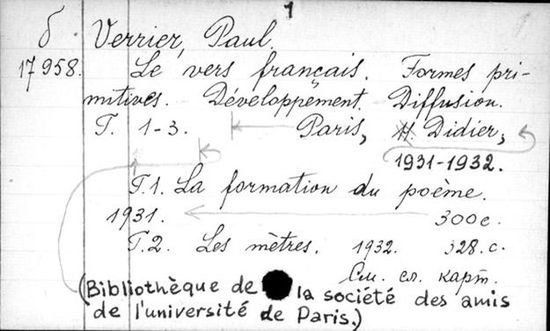 1
б Verrier, Paul.
17958. Le vers français. Formes pri-
mitives. Développement. Diffusion.
T. 1-3. Paris, H. Didier,
1931-1932.
T.1. La formation du poème.
1931. 300 с.
T.2. Les mètres. 1932. 328.с.
См. сл. карт.
(Bibliothèque de la société des amis
de l'université de Paris.)